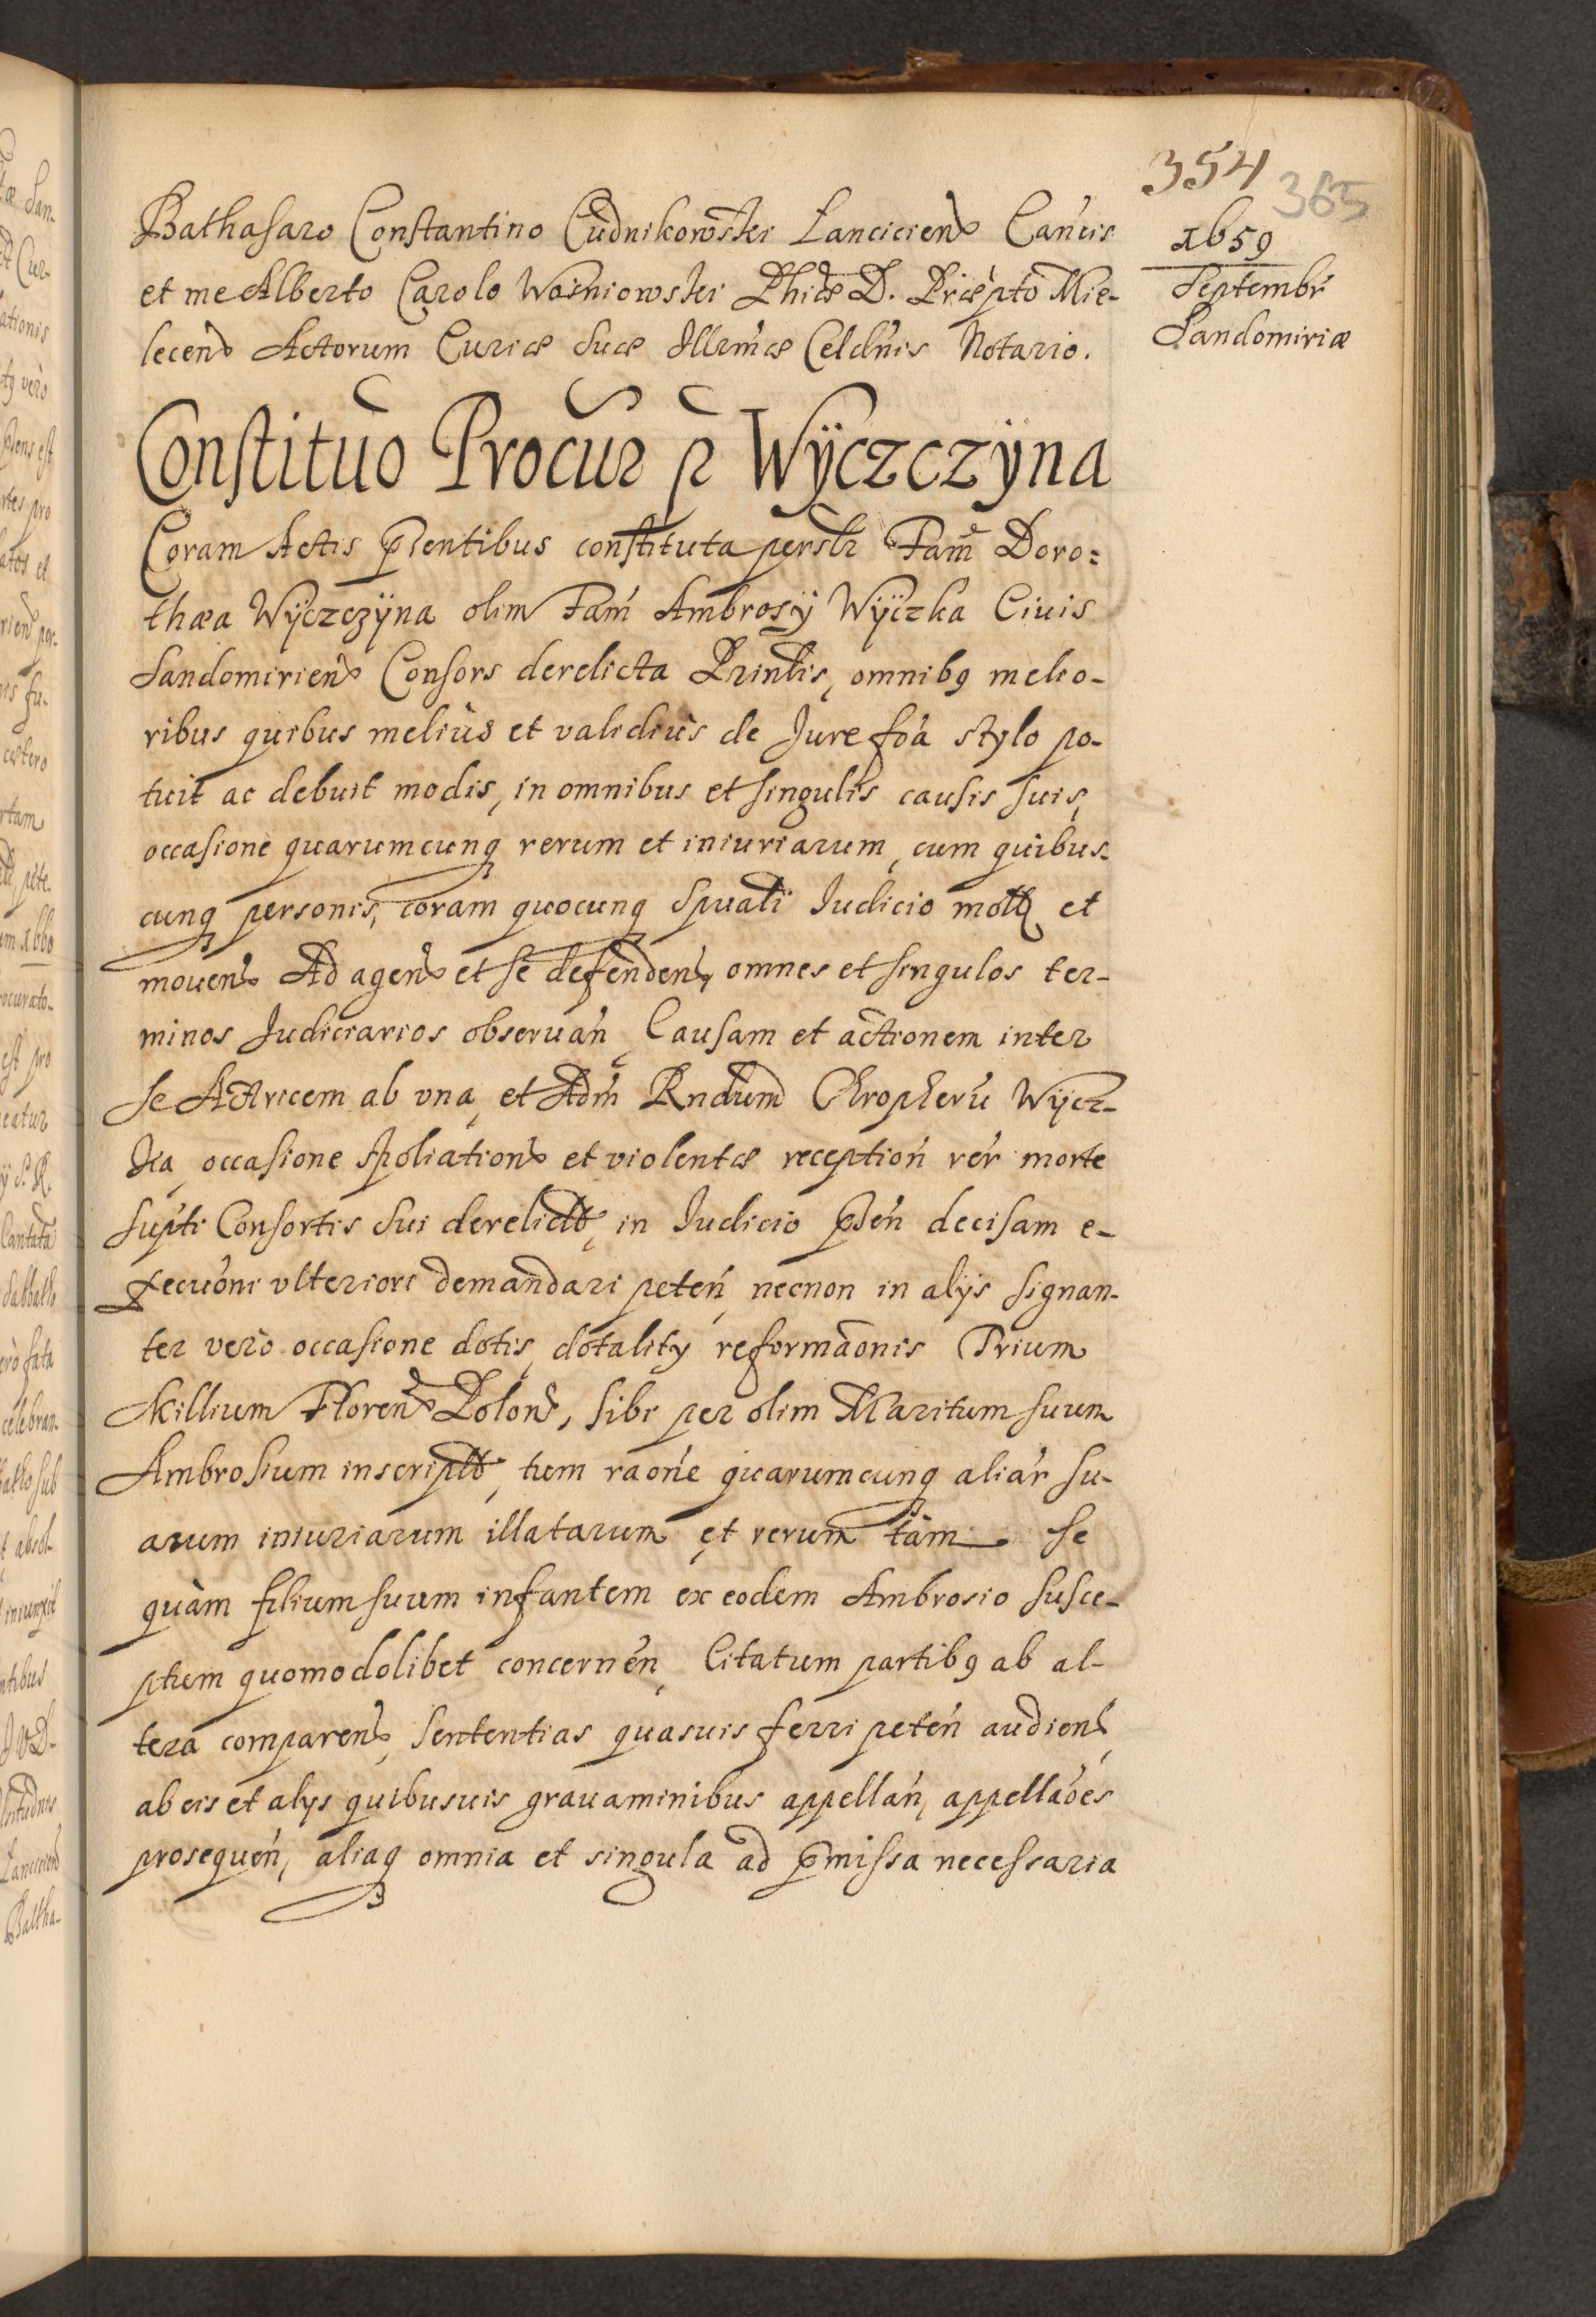 354
365
1659
Septembr
Sandomiriæ
Balthasaro Constantino Cudnikowski Lancicien Cancis
et me Alberto Carolo Wosniowski Phiæ D. Præpto Mie-
lecen Actorum Curiæ Suæ Illrmæ Celdnis Notario.
Constituo Procur p Wÿczczÿna
Coram Actis pñtibus constituta persolr Fam Doro=
thæa Wÿczczÿna olim Fam Ambrosÿ Wÿczka Ciuis
Sandomirien Consors derelicta Prinlis, omnibq melio-
ribus quibus meliùs et validiùs de Jure foâ stylo po-
tuit ac debuit modis, in omnibus et singulis causis suis,
occasione quarumcunq rerum et iniuriarum, cum quibus-
cunq personis, coram quocunq Spuali Judicio motis et
mouen Ad agen et se defenden, omnes et singulos ter-
minos Judiciarios obseruan, Causam et actionem inter
se Actricem ab una, et Adm Rndum Chropherū Wÿcz-
ka, occasione spoliation et violentæ reception rer morte
supti Consortis sui derelict, in Judicio psen decisam e-
xecuōni ulteriori demandari peten, necnon in alijs signan-
ter verò occasione dotis, dotalitÿ reformaōnis Trium
Millium Floren Polon, sibi per olim Maritum suum
Ambrosium inscript, tum raōne quarumcunq aliar su-
arum iniuriarum illatarum et rerum tàm se
quàm filium suum infantem ex eodem Ambrosio susce-
ptum quomodolibet concernen, Citatum partibq ab al-
tera comparen, sententias quasuis ferri peten audien,
ab eis et alys quibusuis grauaminibus appellan, appellaōes
prosequen, aliaq omnia et singula ad pmissa necessaria